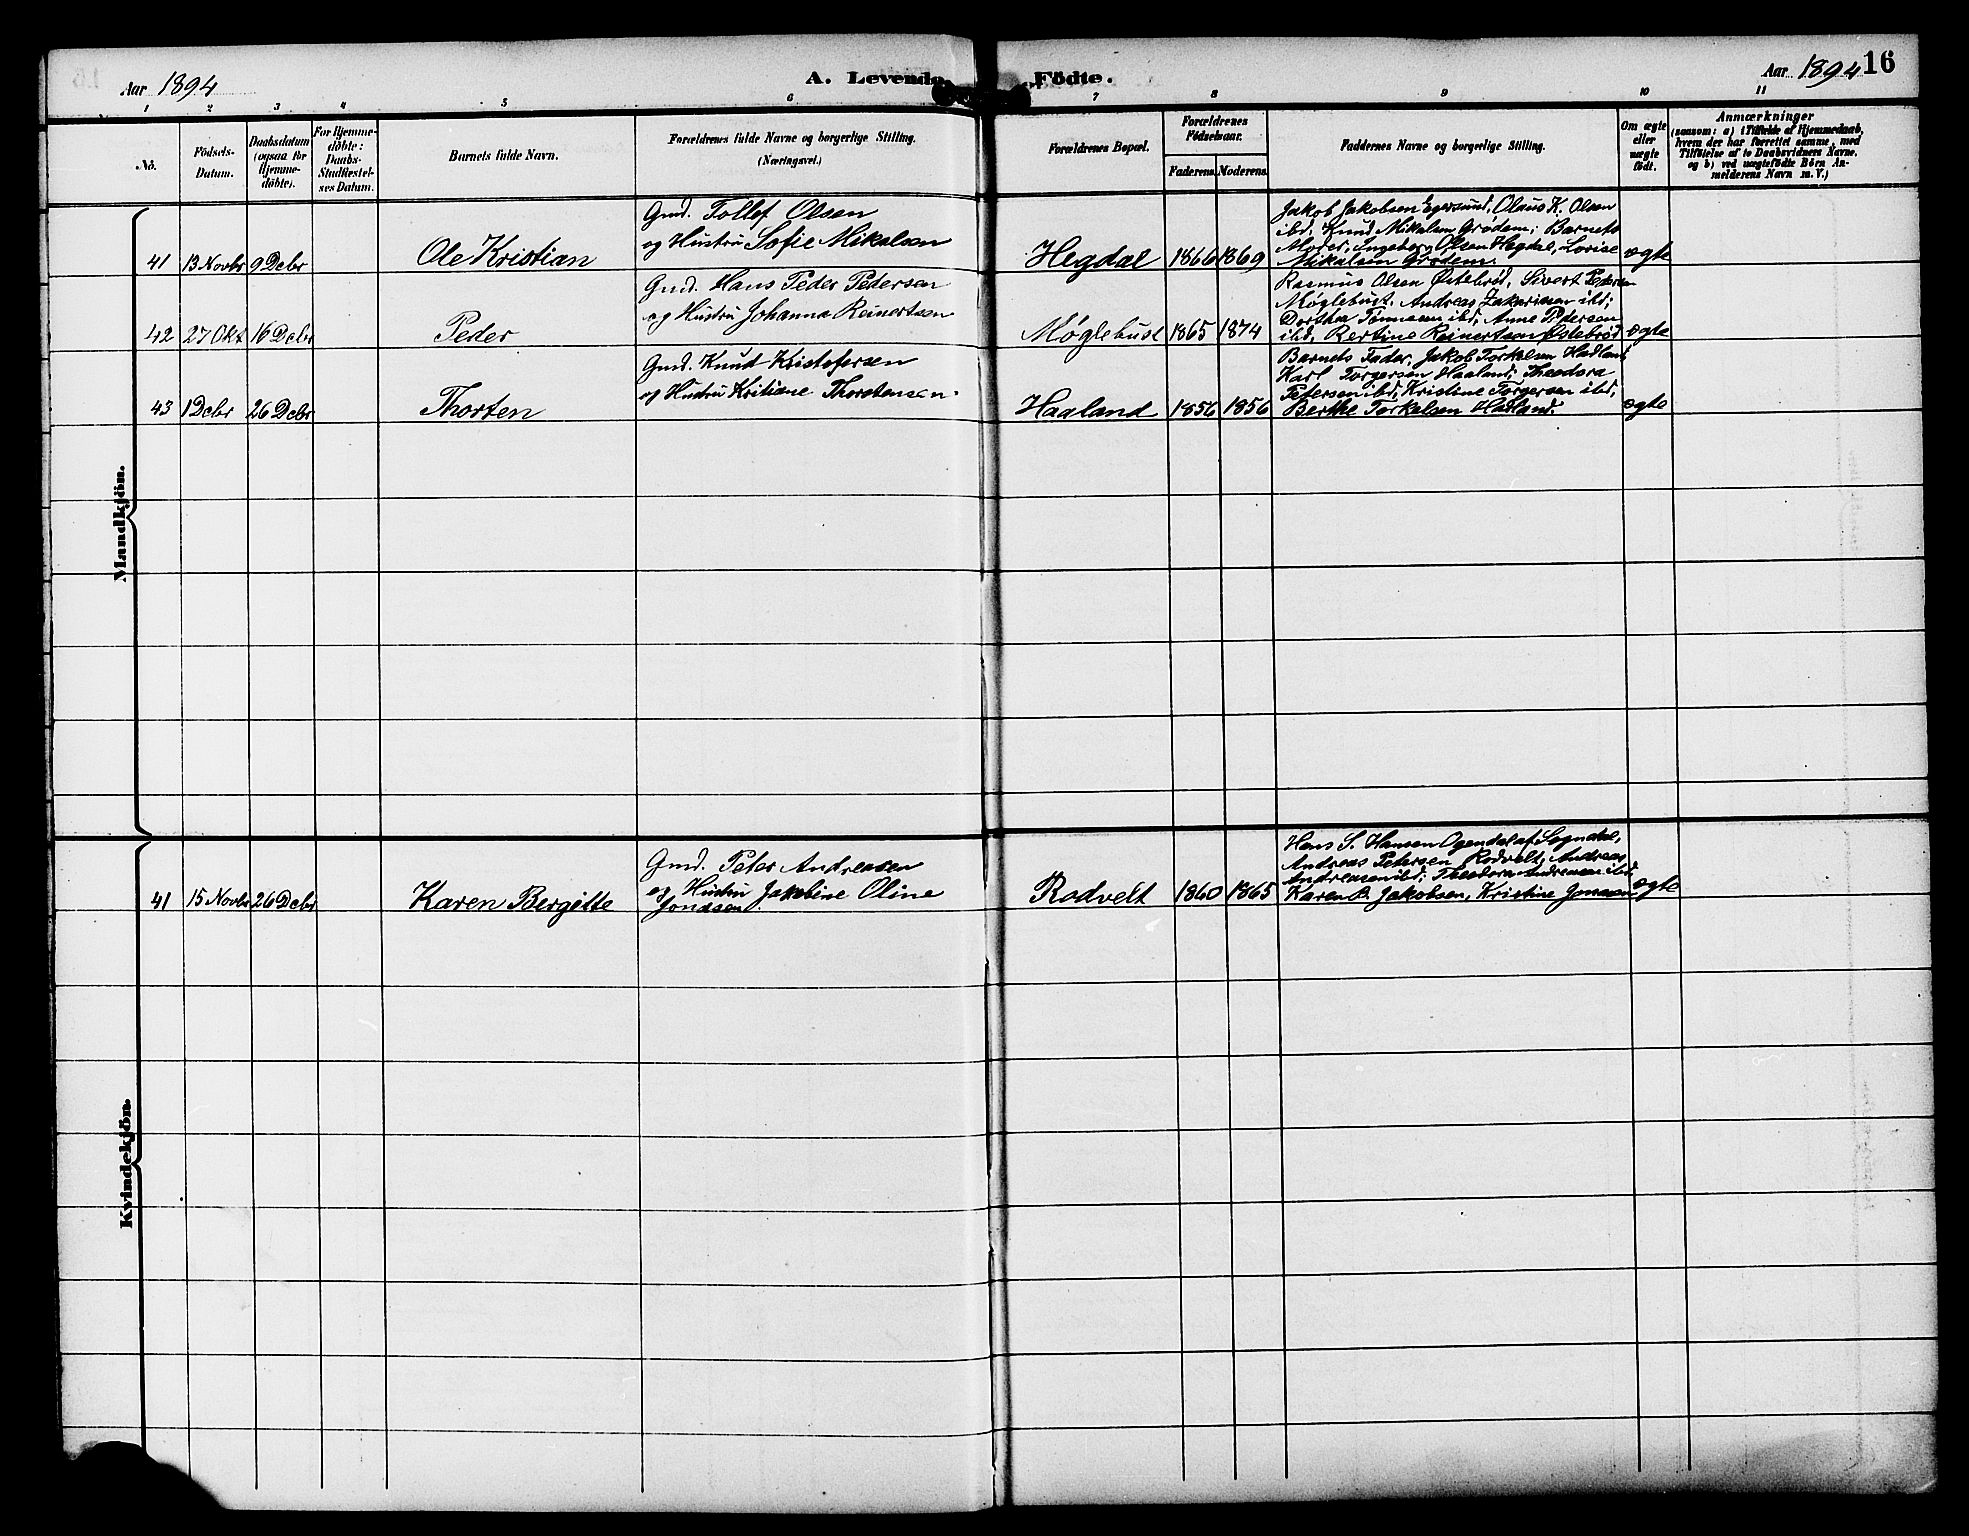 Aar 1894
A. Levende Födte.
Aar 1894
16
1 2 3 4 5 6 7 8 9 10 11
No.
Födsels-
Datum.
Daabsdatum
(ogsaa for
Hjemme-
döbte).
For Hjemme-
döbte:
Daabs-
Stadfæstel-
ses Datum.
Barnets fulde Navn.
Forældrenes fulde Navne og borgerlige Stilling.
(Næringsvei.)
Forældrenes Bopæl.
Forældrenes
Födselsaar.
Faderens. Moderens.
Faddernes Navne og borgerlige Stilling.
Om ægte
eller
uægte
födt.
Anmærkninger
(saasom: a) i Tilfælde af Hjemmedaab,
hvem der har forrettet samme, med
Tilföielse af to Daabsvidners Navne,
og b) ved uægtefödte Börn An-
melderens Navn m. V.)
Mandkjön.
41 13 Novbr 9 Debr
Ole Kristian
Gmd. Tollef Olsen
og Hustru Sofie Mikalsen
Hegdal 1866 1869
Jakob Jakobsen Egersund, Olaus K. Olsen
ibd, Knud Mikalsen Grødem; Barnets
Moder, Ingeborg Olsen Hegdal, Lovise
Mikalsen Grødem.
ægte
42 27 Okt 16 Debr
Peder
Gmd. Hans Peder Pedersen
og Hustru Johanna Reinertsen
Møglebust 1865 1874
Rasmus Olsen Østebrød, Sivert Pedersen
Møglebust, Andreas Zakariasen ibd;
Dorthea Tønnesen ibd, Anne Pedersen
ibd, Bertine Reinertsen Østebrød
ægte
43 1 Debr 26 Debr
Thorten
Gmd. Knud Kristofersen
og Hustru Kritiane Thorstensen.
Haaland 1856 1856
Barnets Fader, Jakob Torkelsen Hadland
Karl Torgersen Haaland; Theodora
Petersen ibd, Kristine Torgersen ibd,
Berthe Torkelsen Hadland.
ægte
Kvindekjön.
41 15 Novbr 26 Debr
Karen Bergitte
Gmd. Peter Andreasen
og Hustru Jakobine Oline
Jondsen.
Rodvelt 1860 1865
Hans S. Hansen Ogendal af Sogndal,
Andreas Petersen Rodvelt, Andreas
Andreasen ibd; Theodora Andreasen ibd,
Karen B. Jakobsen, Kristine
ægte